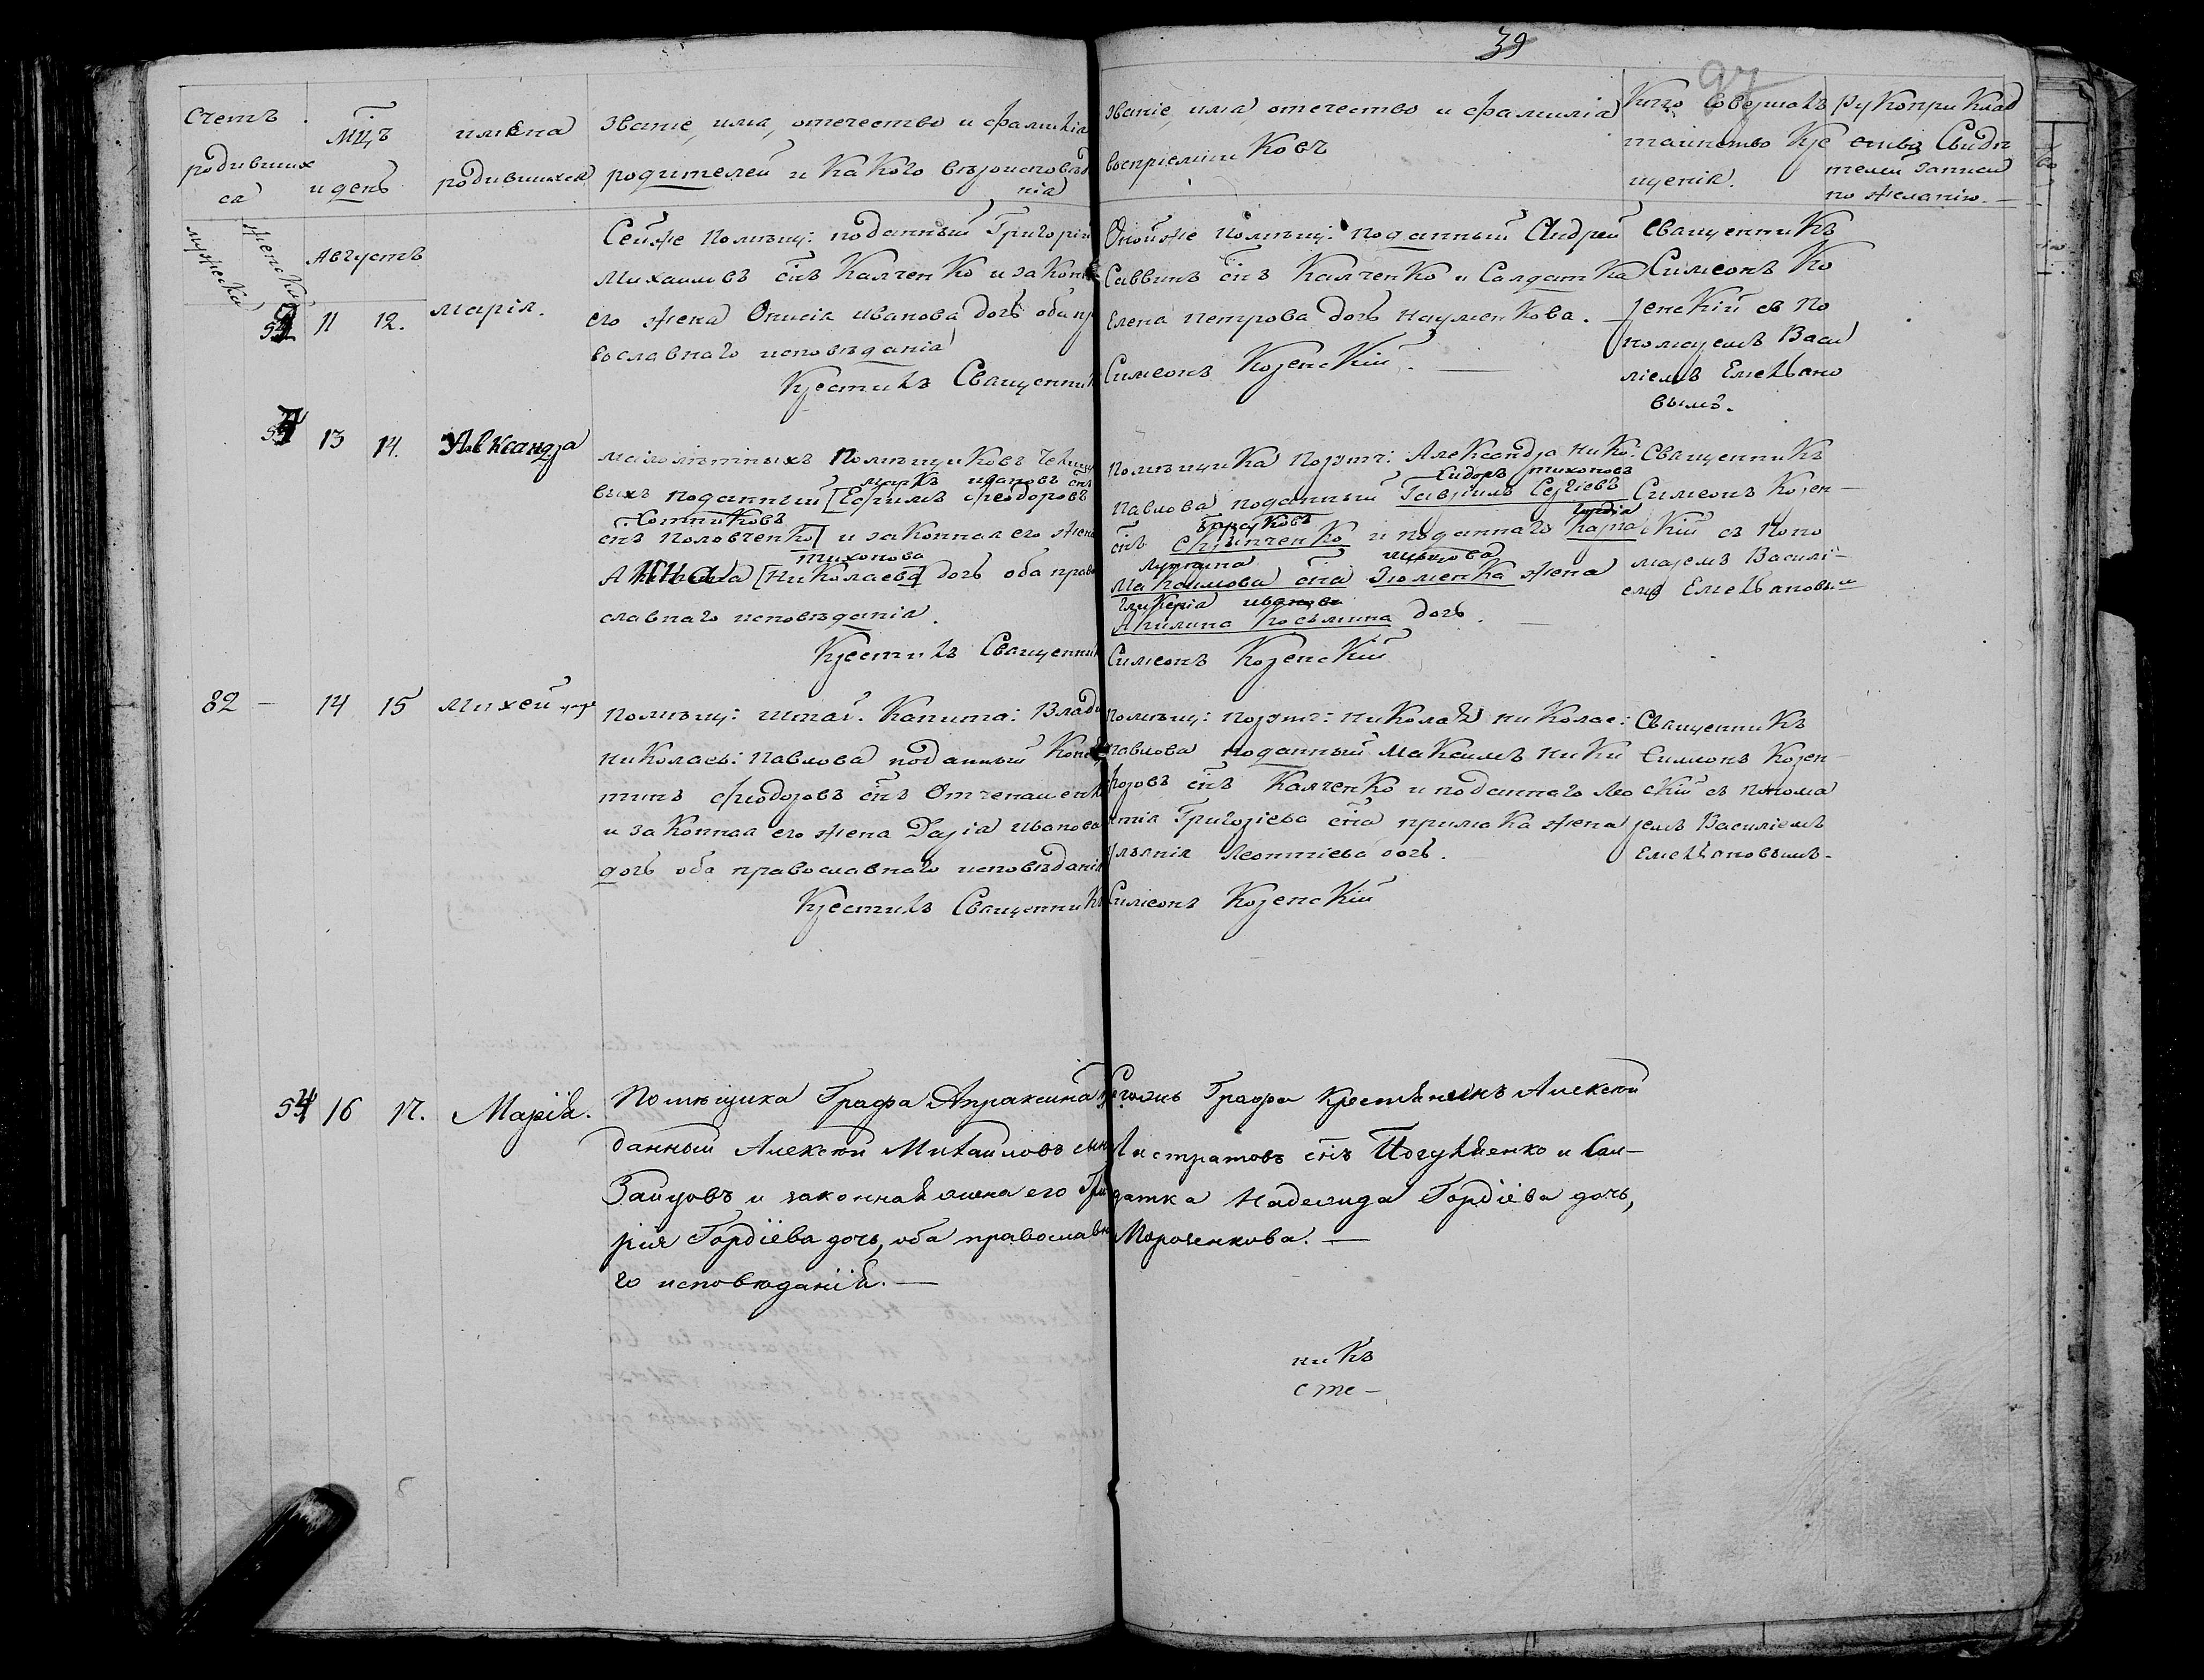 39
97
Счетъ родившихся
мужеска
женска
мцъ и день
имена родившихся
Званіе, имя, отечество и фамилія
родителей и какого вѣроисповѣданія
Званіе, имя, отечество и фамилія
воспріемниковъ
Кто совершалъ таинство Крещенія.
рукоприкладство Свидѣтелей записи по желанію.
Августъ
11 12. марія.
Сейже помѣщ: поданный Григорій
Михаиловъ снъ Калченко и законн
его жена Онисія Иванова дочь оба пр
вославнаго исповѣданія
Крестилъ Священник
Онойже помѣщ: поданный Андрей
Саввинъ снъ Калченко и Салдатка
Елена Петрова дочь Науменкова.
Симеонъ Коренскій.
Священникъ
Симеонъ Ко
ренскій съ по
номаремъ Васи
ліемъ Емельано
вымъ.
13 14. Александра
малолѣтныхъ помѣщиковъ
маркъ ивановъ снъ
выхъ поданный [Ефимъ Феодоровъ
Сотниковъ
снъ Половченко] и законная его жена
Тихонова
Анна [Николаева] дочь оба право
славнаго исповѣданія.
Крестилъ Священник
помѣщика порутч: Александра Нико:
Сидоръ тихоновъ
Павлова поданный Гавріилъ Сергіевъ
снъ и поданнаго
Максимова сна Зюменка жена
Гликерія иванова
Акилина Косьмина дочь.
Симеонъ Коренскій
Священникъ
Симеонъ Корен—
скій съ поно
маремъ Василі—
емъ Емельановым
82 — 14 15 Михей
помѣщ: штаб. Капита: Влади
Николаев: Павлова поданный Конс
тинъ Феодоровъ снъ Отченашенк
и законная его жена Дарія Иванова
дочь оба православнаго исповѣданія
Крестилъ Священникъ
помѣщ: порутч: Николай Николае:
Павлова поданный Максимъ Ники
форовъ снъ Калченко и поданнаго Лео
нтія Григоріева сна примака жена
Улѣянія Леонтіева дочь.
Симеонъ Коренскій
Священникъ
Симеонъ Корен—
скій съ понома
ремъ Василіемъ
Емельановымъ.
54 16 17. Марія.
Помѣщика Графа Апраксина по
данный Алексѣй Михайловъ сын
Зайцовъ и законная жена его
рія Гордіева дочь, оба православн
го исповѣданія. —
Графа крестьянинъ Алексѣй
снъ и Сал—
датка Надежда Гордіева дочь,
Мороченкова. —
никъ
сте—